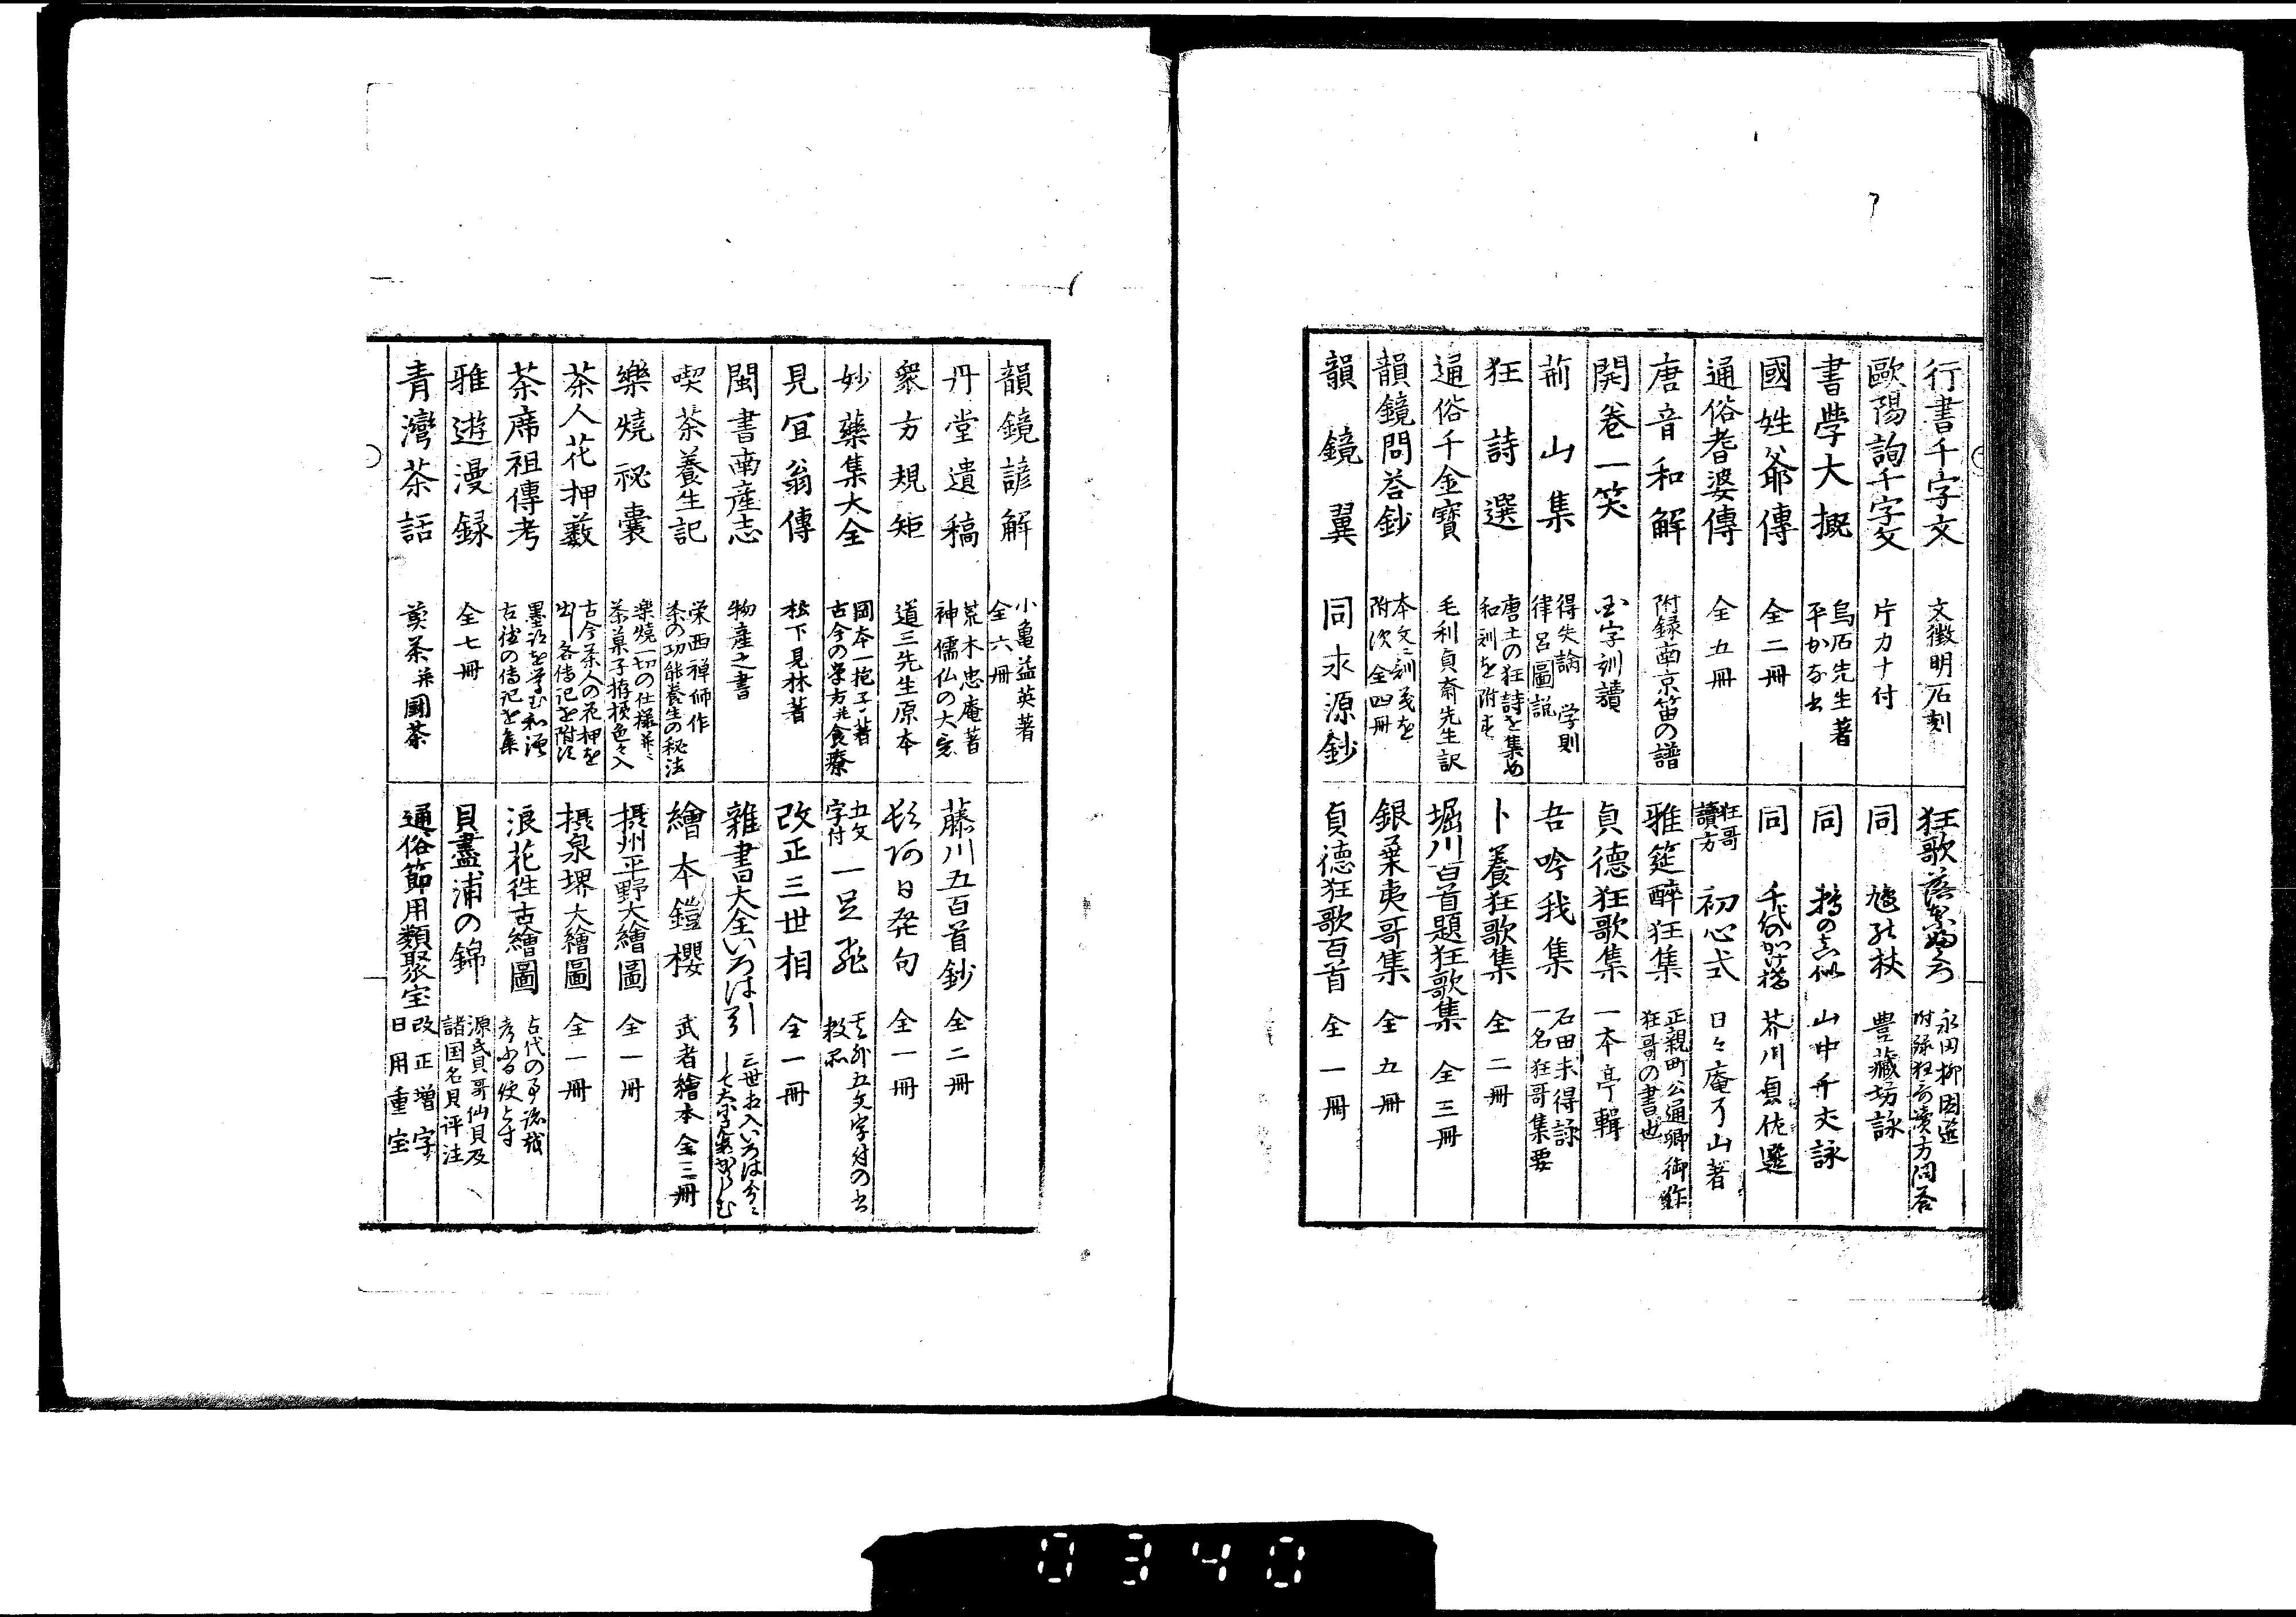 行書千字文 文徴明石刻
歐陽詢千字文 片カナ付
書學大概 烏石先生著
平かな書
國姓爺傳 全二冊
通俗耆婆傳 全五冊
唐音和解 附録南京笛の譜
開卷一笑 国字訓讀
荊山集 得失論 学則
律呂圖説
狂詩選 唐土の狂詩を集め
和訓を附す
通俗千金寳 毛利貞齋先生訳
韻鏡問荅鈔 本文ニ訓義を
附次 全四冊
韻鏡翼 同求源鈔
狂歌落葉嚢 永田柳因選
附録狂哥讀方問荅
同 鳩の杖 豊藏坊詠
同 鵜の真似 山中千丈詠
同 千代のかけ橋 芥川貞佐選
狂哥
讀方 初心式 日々庵了山著
雅筵醉狂集 正親町公通卿御作
狂哥の書也
貞德狂歌集 一本亭輯
吾吟我集 石田未得詠
一名狂哥集要
卜養狂歌集 全二冊
堀川百首題狂歌集 全三冊
銀葉夷哥集 全五冊
貞德狂歌百首 全一冊
韻鏡諺解 小亀益英著
全六冊
丹堂遺稿 荒木忠庵著
神儒仏の大意
衆方規矩 道三先生原本
妙藥集大全 岡本一抱子著
古今の学方并食療
見宜翁傳 松下見林著
閩書南産志 物産之書
喫茶養生記 栄西禅師作
茶の功能養生の秘法
樂燒祕囊 楽燒一切の仕様并ニ
茶菓子拵様色々入
茶人花押藪 古今茶人の花押を
出し各傳記を附ス
茶席祖傳考 墨跡を学む和漢
古徳の傳記を集
雅遊漫録 全七冊
青灣茶話 煎茶并圖茶
藤川五百首鈔 全二冊
咜阿日発句 全一冊
五文
字付 一足飛 其外五文字付の書
数品
改正三世相 全一冊
雜書大全いろは引 三世相入いろは分ニ
繪本鎧櫻 武者繪本全三冊
摂州平野大繪圖 全一冊
摂泉堺大繪圖 全一冊
浪花徃古繪圖 古代の事跡我
考ふる便とす
貝盡浦の錦 源氏貝哥仙貝及
諸国名貝評注
通俗節用類聚宝 改正増字
日用重宝
0340